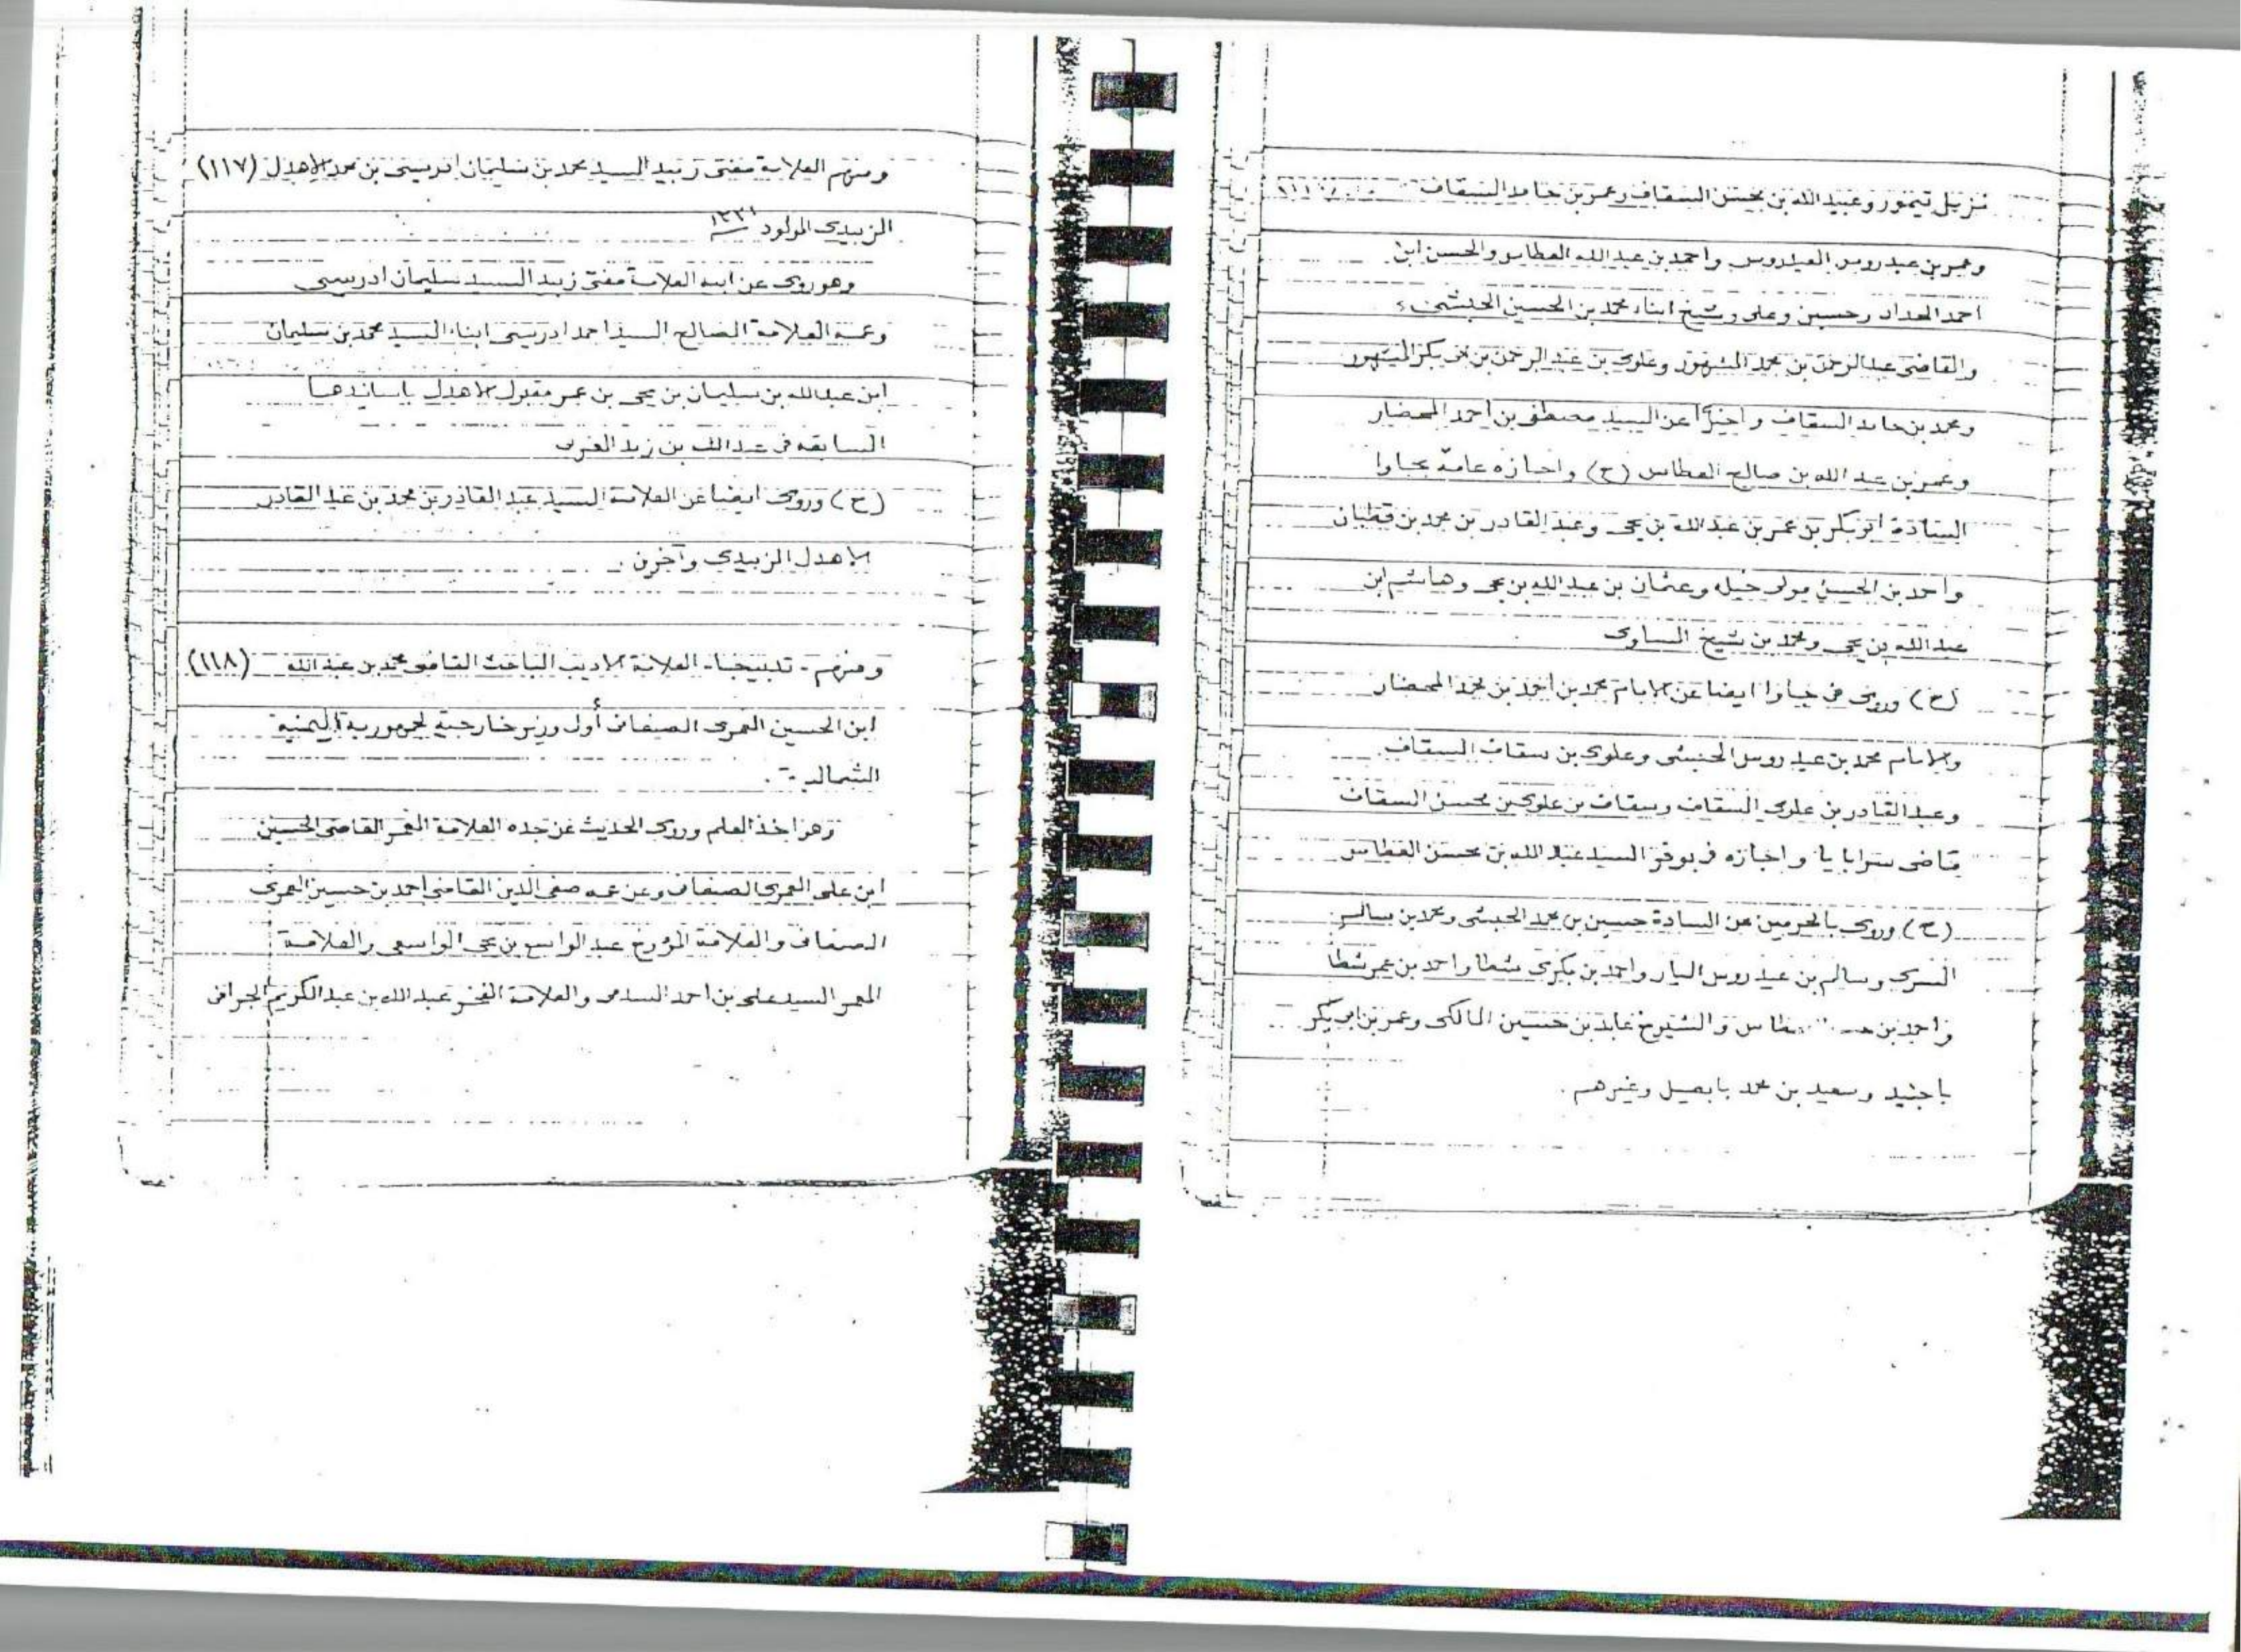 نزيل تيمور وعبيد الله بن محسن السقاف وعمر بن حامد السقاف
وعمر بن عيدروس العيدروس واحمد بن عبد الله العطاس والحسن ابن
احمد الحداد وحسين وعلى وشيخ ابناء محمد بن الحسين الحبشي
والقاضى عبد الرحمن بن محمد المشهور وعلوى بن عبد الرحمن بن ابى بكر المشهور
ومحمد بن حامد السقاف و عن السيد مصطفى بن احمد المحضار
وعمر بن عبد الله بن صالح العطاس (ح) واجازه عامة بجاوا
السادة ابو بكر بن عمر بن عبد الله بن يحى وعبد القادر بن محمد بن قطبان
واحمد بن الحسين مولى خيله وعثمان بن عبد الله بن يحى وهاشم ابن
عبد الله بن يحى ومحمد بن شيخ المساوى
(ح) وروى فى جاوا ايضا عن الامام محمد بن احمد بن محمد المحضار
والامام محمد بن عيدروس الحبشى وعلوى بن سقاف السقاف
وعبد القادر بن علوى السقاف وسقاف بن علوى بن محسن السقاف
قاضى سرابايا واجازه فى بوقر السيد عبد الله بن محسن العطاس
(ح) وروى بالحرمين عن السادة حسين بن محمد الحبشى ومحمد بن سالم
السرى وسالم بن عيدروس البار واحمد بن بكرى شطا واحمد بن عمر شطا
واحمد بن العطاس والشيوخ عابد بن حسين المالكى وعمر بن ابو بكر
باجنيد وسعيد بن محمد بابصيل وغيرهم .
ومنهم العلامة مفتى زبيد السيد محمد بن سليمان ادريسى بن محمد الاهدل (١١٧)
الزبيدى المولود
وهو روى عن ابيه العلامة مفتى زبيد السيد سليمان ادريسى
وعمه العلامة الصالح السيد احمد ادريسى ابناء السيد محمد بن سليمان
ابن عبدالله بن سليمان بن يحى بن عمر مقبول الاهدل باساندهما
السابقه فى عبدالله بن زيد المغربى
(ح) وروى ايضا عن العلامة السيد عبد القادر بن محمد بن عبد القادر
الاهدل الزبيدى وآخرن .
ومنهم - تدبيجا - العلامة الاديب الباحث القاضى محمد بن عبد الله (١١٨)
ابن الحسين العمرى الصنعانى أول وزير خارجية لجمهورية اليمنية
الشمالية .
وهو اخذ العلم وروى الحديث عن جده العلامة المعمر القاضى الحسين
ابن على العمرى الصنعانى وعن عمه صفى الدين القاضى احمد بن حسين العمرى
الصنعانى والعلامة المؤرخ عبد الواسع بن يحى الواسعى والعلامة
المعمر السيد على بن احمد السدمى والعلامة الفخر عبد الله بن عبد الكريم الجرافى